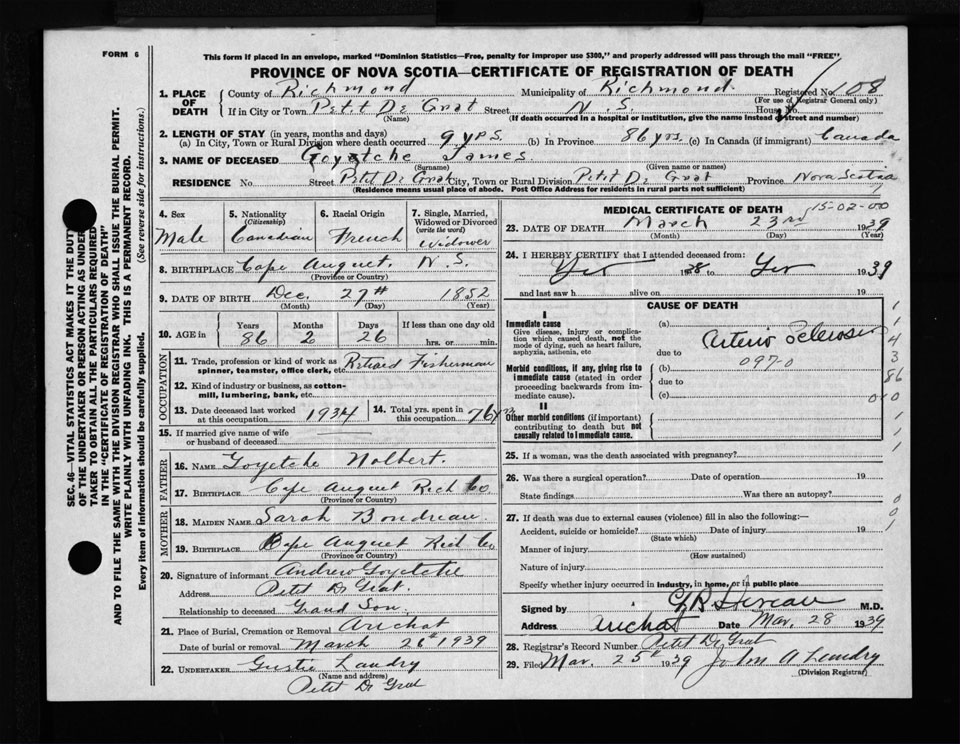 FORM 6
This form if placed in an envelope, marked "Dominion Statistics—Free, penalty for improper use $300," and properly addressed will pass through the mail "FREE"
PROVINCE OF NOVA SCOTIA—CERTIFICATE OF REGISTRATION OF DEATH
1. PLACE OF DEATH County of Richmond Municipality of Richmond. Registered No. 108
(For use of Registrar General only)
If in City or Town Petit De Grat Street N. S. House No.
(Name) (If death occurred in a hospital or institution, give the name instead of street and number)
2. LENGTH OF STAY (in years, months and days)
(a) In City, Town or Rural Division where death occurred 9 yrs. (b) In Province 86 yrs. (c) In Canada (if immigrant) Canada
3. NAME OF DECEASED Goyetche James.
(Surname) (Given name or names)
RESIDENCE No. Street Petit De Grat City, Town or Rural Division Petit De Grat Province Nova Scotia
(Residence means usual place of abode. Post Office Address for residents in rural parts not sufficient)
4. Sex Male
5. Nationality (Citizenship) Canadian
6. Racial Origin French
7. Single, Married, Widowed or Divorced (write the word) Widower
8. BIRTHPLACE Cape August. N. S.
(Province or Country)
9. DATE OF BIRTH Dec. 27th 1852
(Month) (Day) (Year)
10. AGE in Years 86 Months 2 Days 26 If less than one day old hrs. or min.
OCCUPATION
11. Trade, profession or kind of work as spinner, teamster, office clerk, etc. Retired Fisherman
12. Kind of industry or business, as cotton-mill, lumbering, bank, etc.
13. Date deceased last worked at this occupation 1934 14. Total yrs. spent in this occupation 76 yrs
15. If married give name of wife or husband of deceased
FATHER
16. NAME Goyetche Nolbert.
17. BIRTHPLACE Cape August Rich Co
(Province or Country)
MOTHER
18. MAIDEN NAME Sarah Boudreau.
19. BIRTHPLACE Cape August Rich Co.
(Province or Country)
20. Signature of informant Andrew Goyetche
Address Petit De Grat.
Relationship to deceased Grand Son.
21. Place of Burial, Cremation or Removal Arichat
Date of burial or removal March 26th 1939
22. UNDERTAKER Gustie Landry
(Name and address)
Petit De Grat
MEDICAL CERTIFICATE OF DEATH 15-02-00
23. DATE OF DEATH March 23rd 1939
(Month) (Day) (Year)
24. I HEREBY CERTIFY that I attended deceased from:
Yes 1938 to Yes 1939
and last saw h alive on 19
CAUSE OF DEATH
I
Immediate cause
Give disease, injury or complication which caused death, not the mode of dying, such as heart failure, asphyxia, asthenia, etc
Morbid conditions, if any, giving rise to immediate cause (stated in order proceeding backwards from immediate cause).
II
Other morbid conditions (if important) contributing to death but not causally related to immediate cause.
(a) Arterio Sclerosis
due to
(b) 097-0
due to
(c)
25. If a woman, was the death associated with pregnancy?
26. Was there a surgical operation? Date of operation 19
State findings Was there an autopsy?
27. If death was due to external causes (violence) fill in also the following:—
Accident, suicide or homicide? Date of injury 19
(State which)
Manner of injury
(How sustained)
Nature of injury
Specify whether injury occurred in industry, in home, or in public place
Signed by M.D.
Address Arichat Date Mar. 28 1939
28. Registrar's Record Number Petit De Grat
29. Filed Mar. 25th 1939 John A Landry
(Division Registrar)
SEC. 46—VITAL STATISTICS ACT MAKES IT THE DUTY
OF THE UNDERTAKER OR PERSON ACTING AS UNDER
TAKER TO OBTAIN ALL THE PARTICULARS REQUIRED
IN THE "CERTIFICATE OF REGISTRATION OF DEATH"
AND TO FILE THE SAME WITH THE DIVISION REGISTRAR WHO SHALL ISSUE THE BURIAL PERMIT.
WRITE PLAINLY WITH UNFADING INK. THIS IS A PERMANENT RECORD.
Every item of information should be carefully supplied. (See reverse side for instructions.)
1
1
4
3
86
0 0
1
1
0
0
1